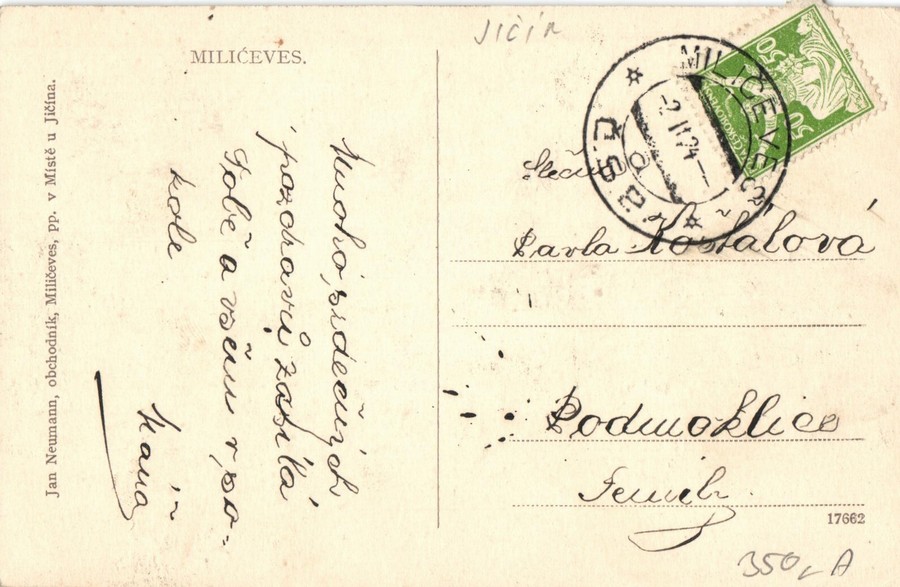 JIČÍN
MILIĆEVES.
Jan Neumann, obchodník, Miličeves, pp. v Místě u Jičína.
Mnoho srdečných
pozdravů zasílá
Tobě a všem v po-
kole
Máňa
MILIČEVES
ČSP
-2 II 24-
50
50
Slečna
Pavla Košťálová
Podmoklice
Semily.
17662
350,- A